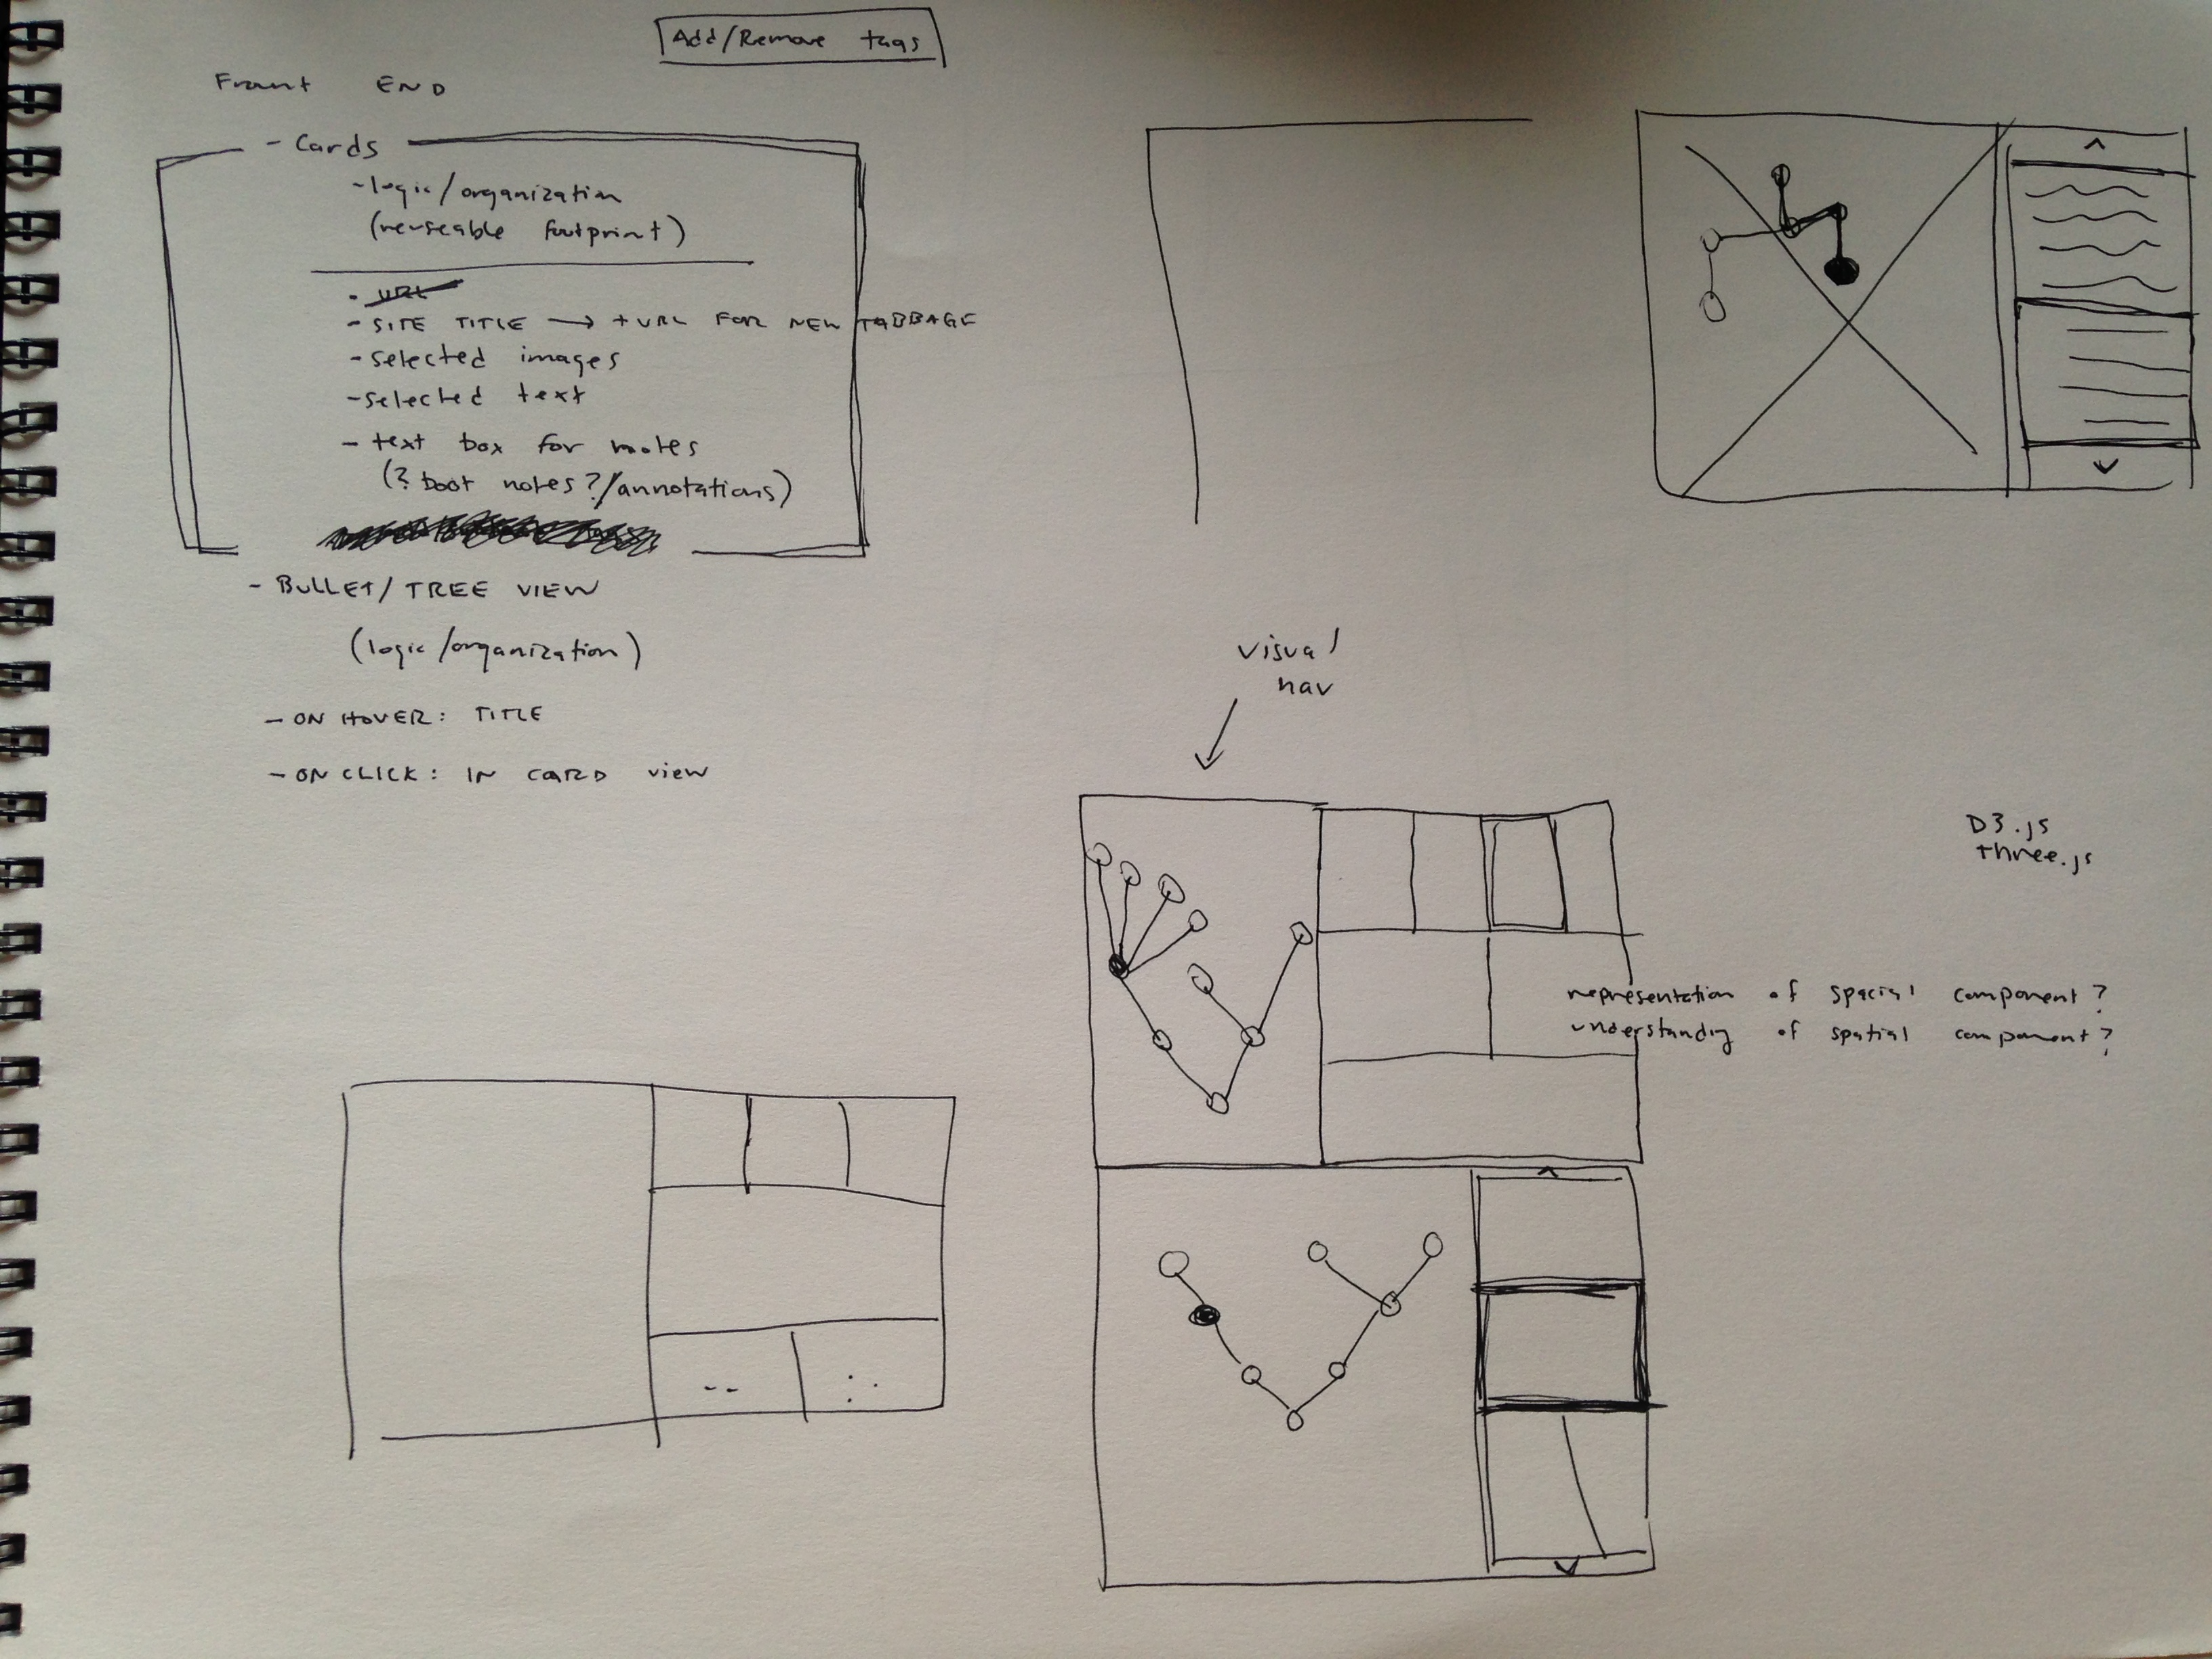 Front END
Add/Remove tags
- Cards
- logic/organization
(reuseable footprint)
• URL
- SITE TITLE → + URL FOR NEW TABBAGE
- selected images
- selected text
- text box for notes
(? boot notes?/annotations)
- BULLET/TREE VIEW
(logic/organization)
- ON HOVER: TITLE
- ON CLICK: IN CARD view
visual
nav
D3.js
three.js
representation of spacial component?
understanding of spatial component?